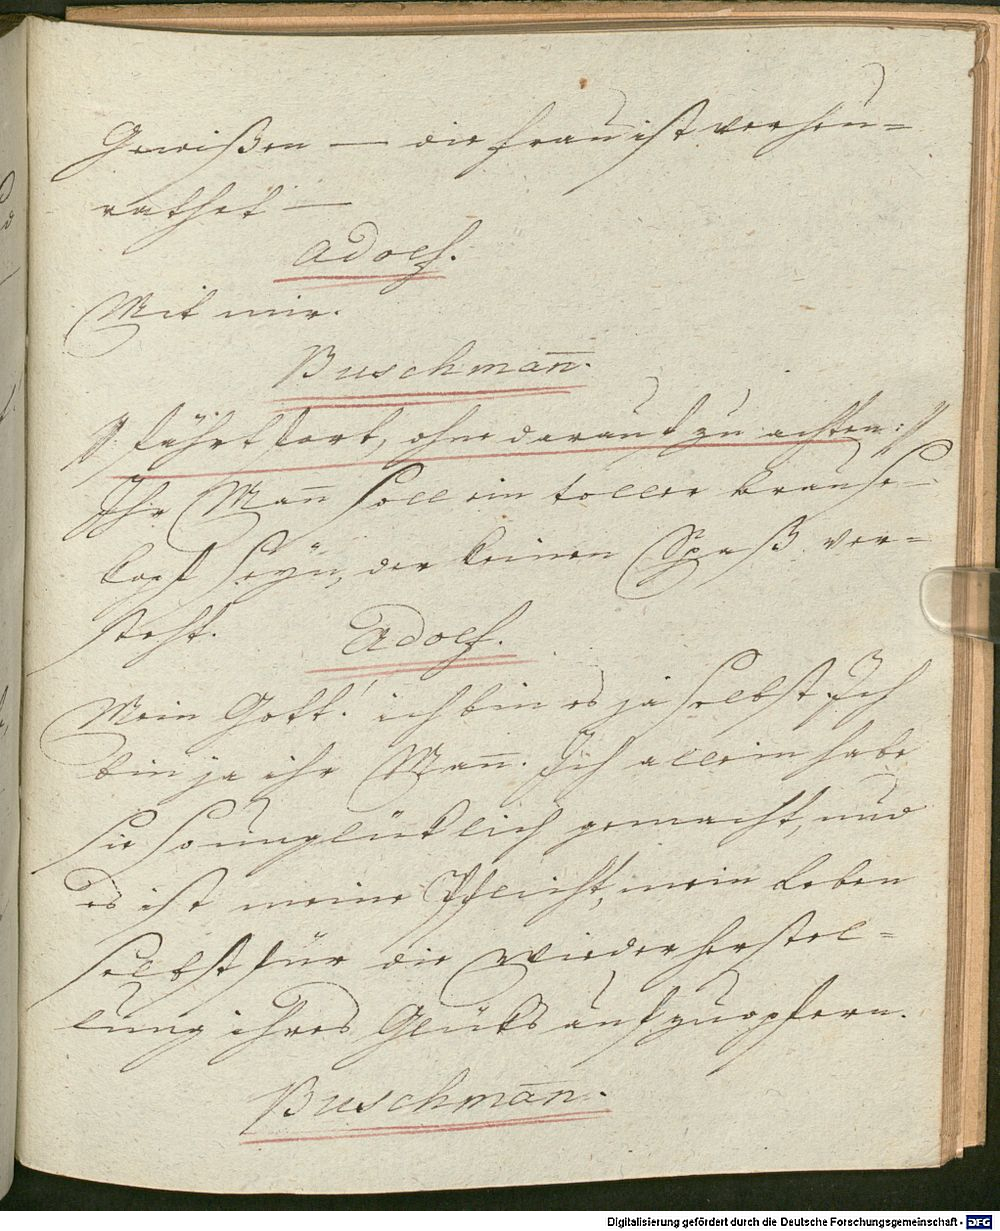 Gewißen — die Frau ist verheu=
rathet —
Adolf.
Mit mir.
Buschmañ.
/: fährt fort, ohne darauf zu achten :/
Ihr Mañ soll ein toller Brause-
kopf seÿn, der keinen Spaß ver=
steht.
Adolf.
Mein Gott! ich bin es ja selbst Ich
bin ja ihr Mañ. Ich allein habe
sie so unglücklich gemacht, und
es ist meine Pflicht, mein Leben
selbst für die Wiederherstel=
lung ihres Glüks aufzuopfern.
Buschmañ.
Digitalisierung gefördert durch die Deutsche Forschungsgemeinschaft - DFG